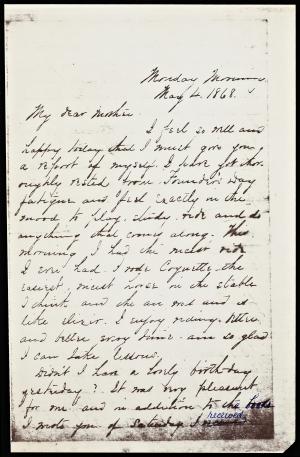 Monday Morning
May 4. 1868.
My dear Mother.
I feel so well and
happy today that I must give you
a report of myself. I have got thor-
oughly rested from Founder's Day
fatigue and feel exactly in the
mood to play, study, ride and do
anything that comes along. This
morning I had the nicest ride
I ever had. I rode Coquette, the
easiest, nicest horse in the stable
I think, and the air was and is
like elixir. I enjoy riding better
and better every time - am so glad
I can take lessons.
Didn't I have a lovely birthday
yesterday? It was very pleasant
for me and in addition to the books
I wrote you of Saturday I received